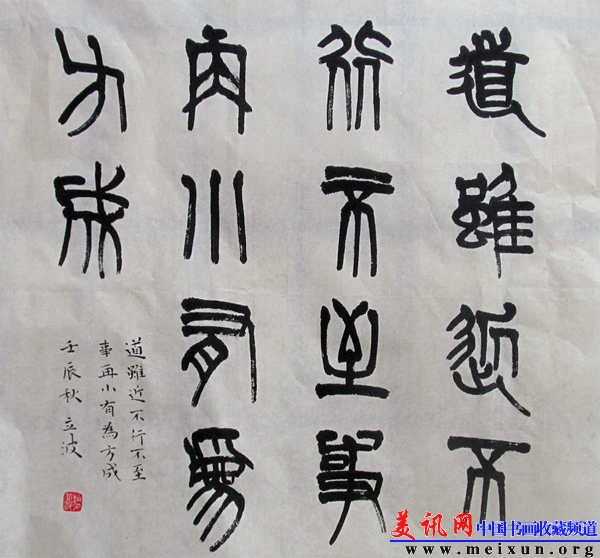 道雖近不
行不至事
再小有為
方成
道雖近不行不至
事再小有為方成
壬辰秋 立波
美讯网 中国书画收藏频道
www.meixun.org